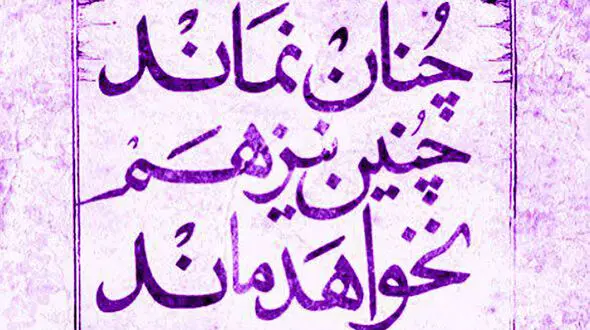 چُنان نَماَند
چُنین نیز هَم
نخواهَد ماند